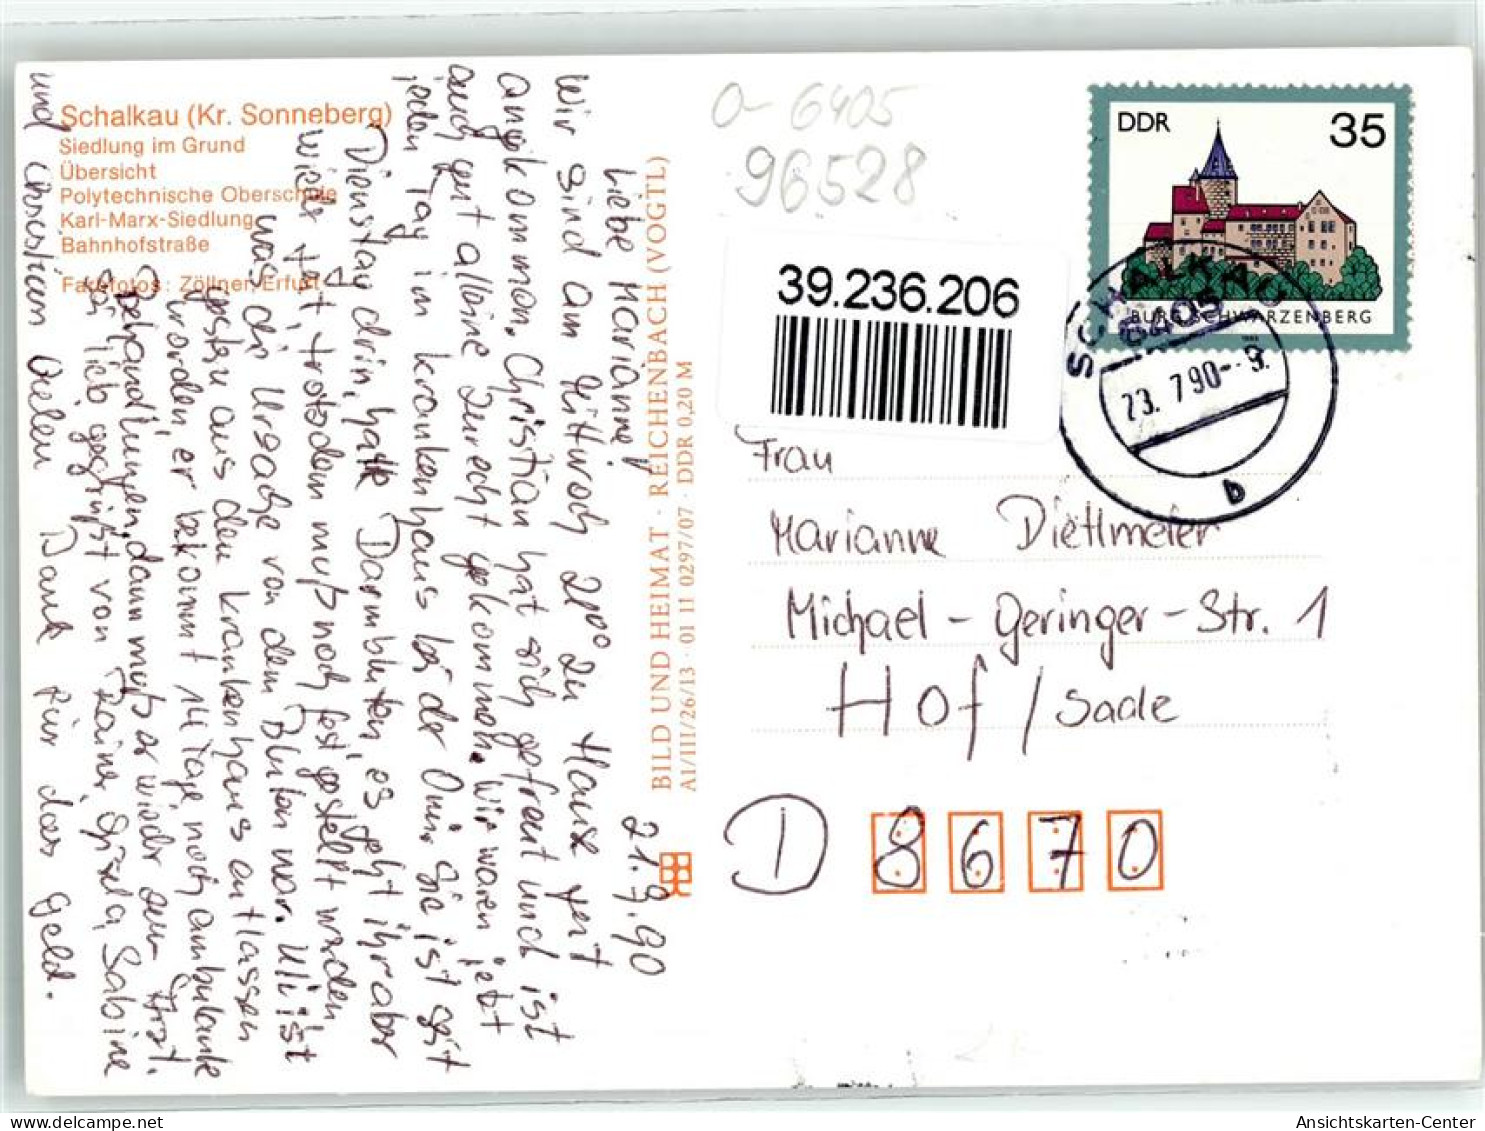 Schalkau (Kr. Sonneberg)
Siedlung im Grund
Übersicht
Polytechnische Oberschule
Karl-Marx-Siedlung
Bahnhofstraße
Farbfotos: Zöllner, Erfurt
21.7.90
Liebe Marianne!
Wir sind am Mittwoch 21⁰⁰ zu Hause
angekommen. Christian hat sich gefreut und ist
auch gut alleine zurecht gekommen. Wir waren jetzt
jeden Tag im Krankenhaus bei der Omi. Sie ist seit
Dienstag drin, hatte Darmbluten, es geht ihr aber
wieder gut, trotzdem muß noch festgestellt werden,
was die Ursache von dem Bluten war. Uli ist
gestern aus dem Krankenhaus entlassen
worden, er bekommt 14 Tage noch ambulante
Behandlungen, dann muß er wieder zum Arzt.
Sei lieb gegrüßt von Rainer, Gisela, Sabine
und Christian Vielen Dank für das Geld.
BILD UND HEIMAT · REICHENBACH (VOGTL)
A1/III/26/13 · 01 11 0297/07 · DDR 0,20 M
O-6405
96528
39.236.206
DDR 35
BURG SCHWARZENBERG
SCHALKAU
6405
23.7.90-9.
b
Frau
Marianne Dietlmeier
Michael-Geringer-Str. 1
Hof / Saale
D 8670
Ansichtskarten-Center